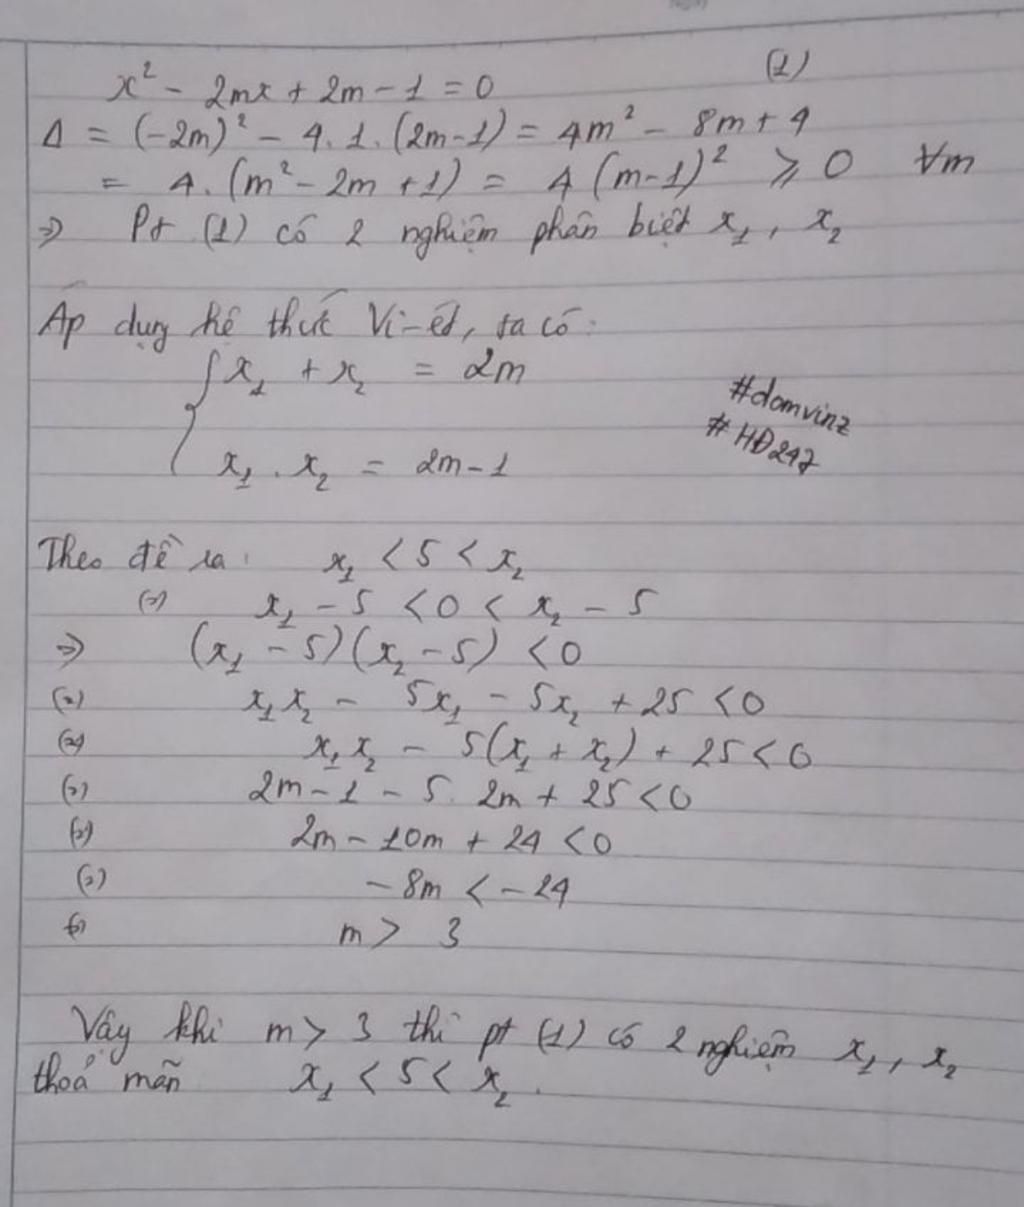 x² - 2mx + 2m - 1 = 0 (1)
Δ = (-2m)² - 4.1.(2m-1) = 4m² - 8m + 4
= 4.(m² - 2m + 1) = 4(m-1)² ⩾ 0 ∀m
=> Pt (1) có 2 nghiệm phân biệt x₁, x₂
Áp dụng hệ thức Vi-ét, ta có:
{ x₁ + x₂ = 2m
x₁ . x₂ = 2m - 1
#domvinz
#HĐ247
Theo đề ra: x₁ < 5 < x₂
(=) x₁ - 5 < 0 < x₂ - 5
=> (x₁ - 5)(x₂ - 5) < 0
(=) x₁x₂ - 5x₁ - 5x₂ + 25 < 0
(=) x₁x₂ - 5(x₁ + x₂) + 25 < 0
(=) 2m - 1 - 5. 2m + 25 < 0
(=) 2m - 10m + 24 < 0
(=) -8m < -24
(=) m > 3
Vậy khi m > 3 thì pt (1) có 2 nghiệm x₁, x₂
thoả mãn x₁ < 5 < x₂.